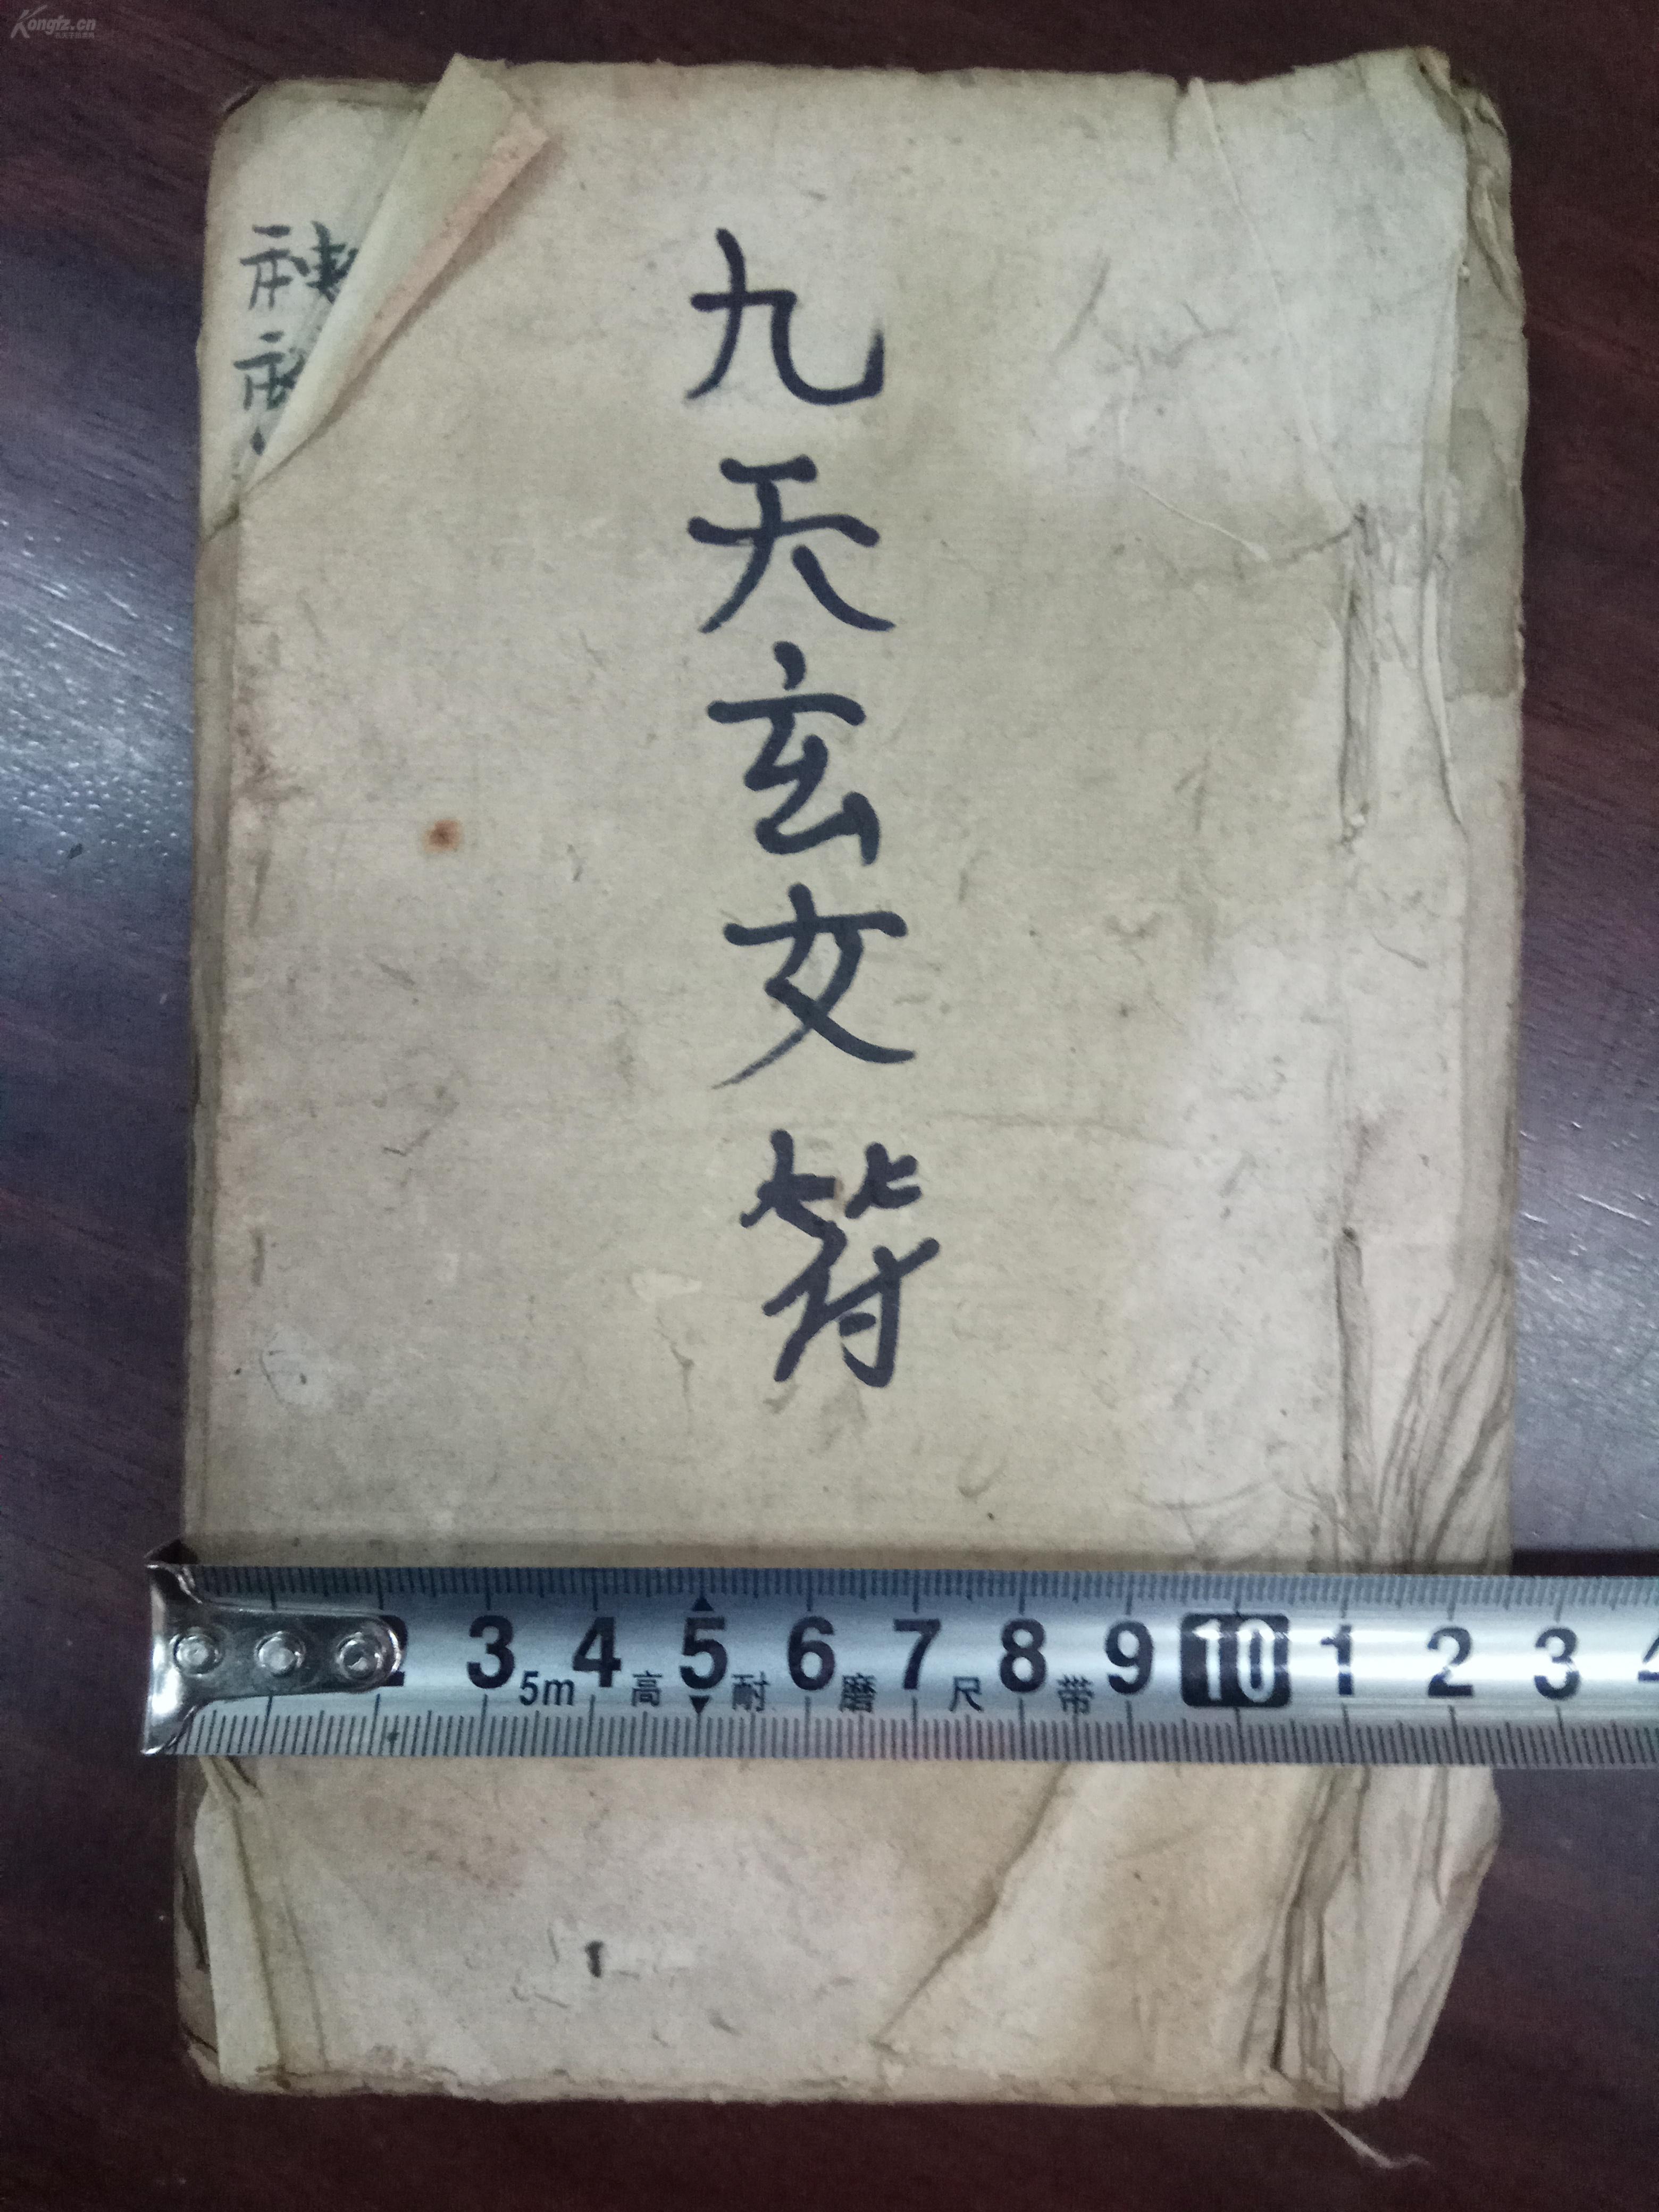 Kongfz.cn
九天玄女符
3 4 5 6 7 8 9 10 1 2 3
5m 高耐磨尺带